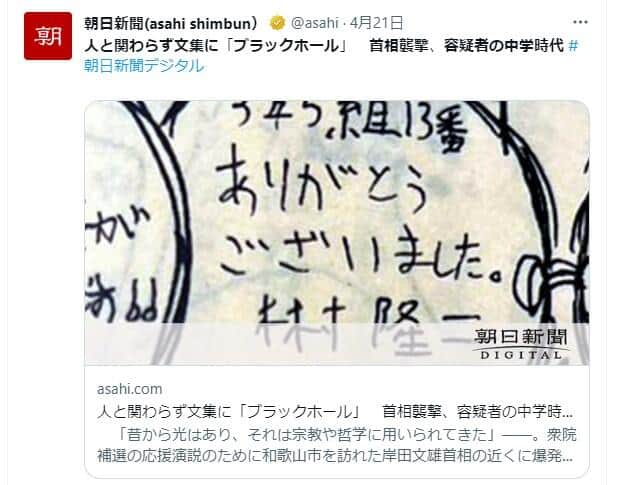 朝
朝日新聞(asahi shimbun） @asahi · 4月21日 ···
人と関わらず文集に「ブラックホール」　首相襲撃、容疑者の中学時代 #
朝日新聞デジタル
組13番
ありがとう
ございました。
隆二
が
朝日新聞
DIGITAL
asahi.com
人と関わらず文集に「ブラックホール」　首相襲撃、容疑者の中学時...
「昔から光はあり、それは宗教や哲学に用いられてきた」――。衆院
補選の応援演説のために和歌山市を訪れた岸田文雄首相の近くに爆発...